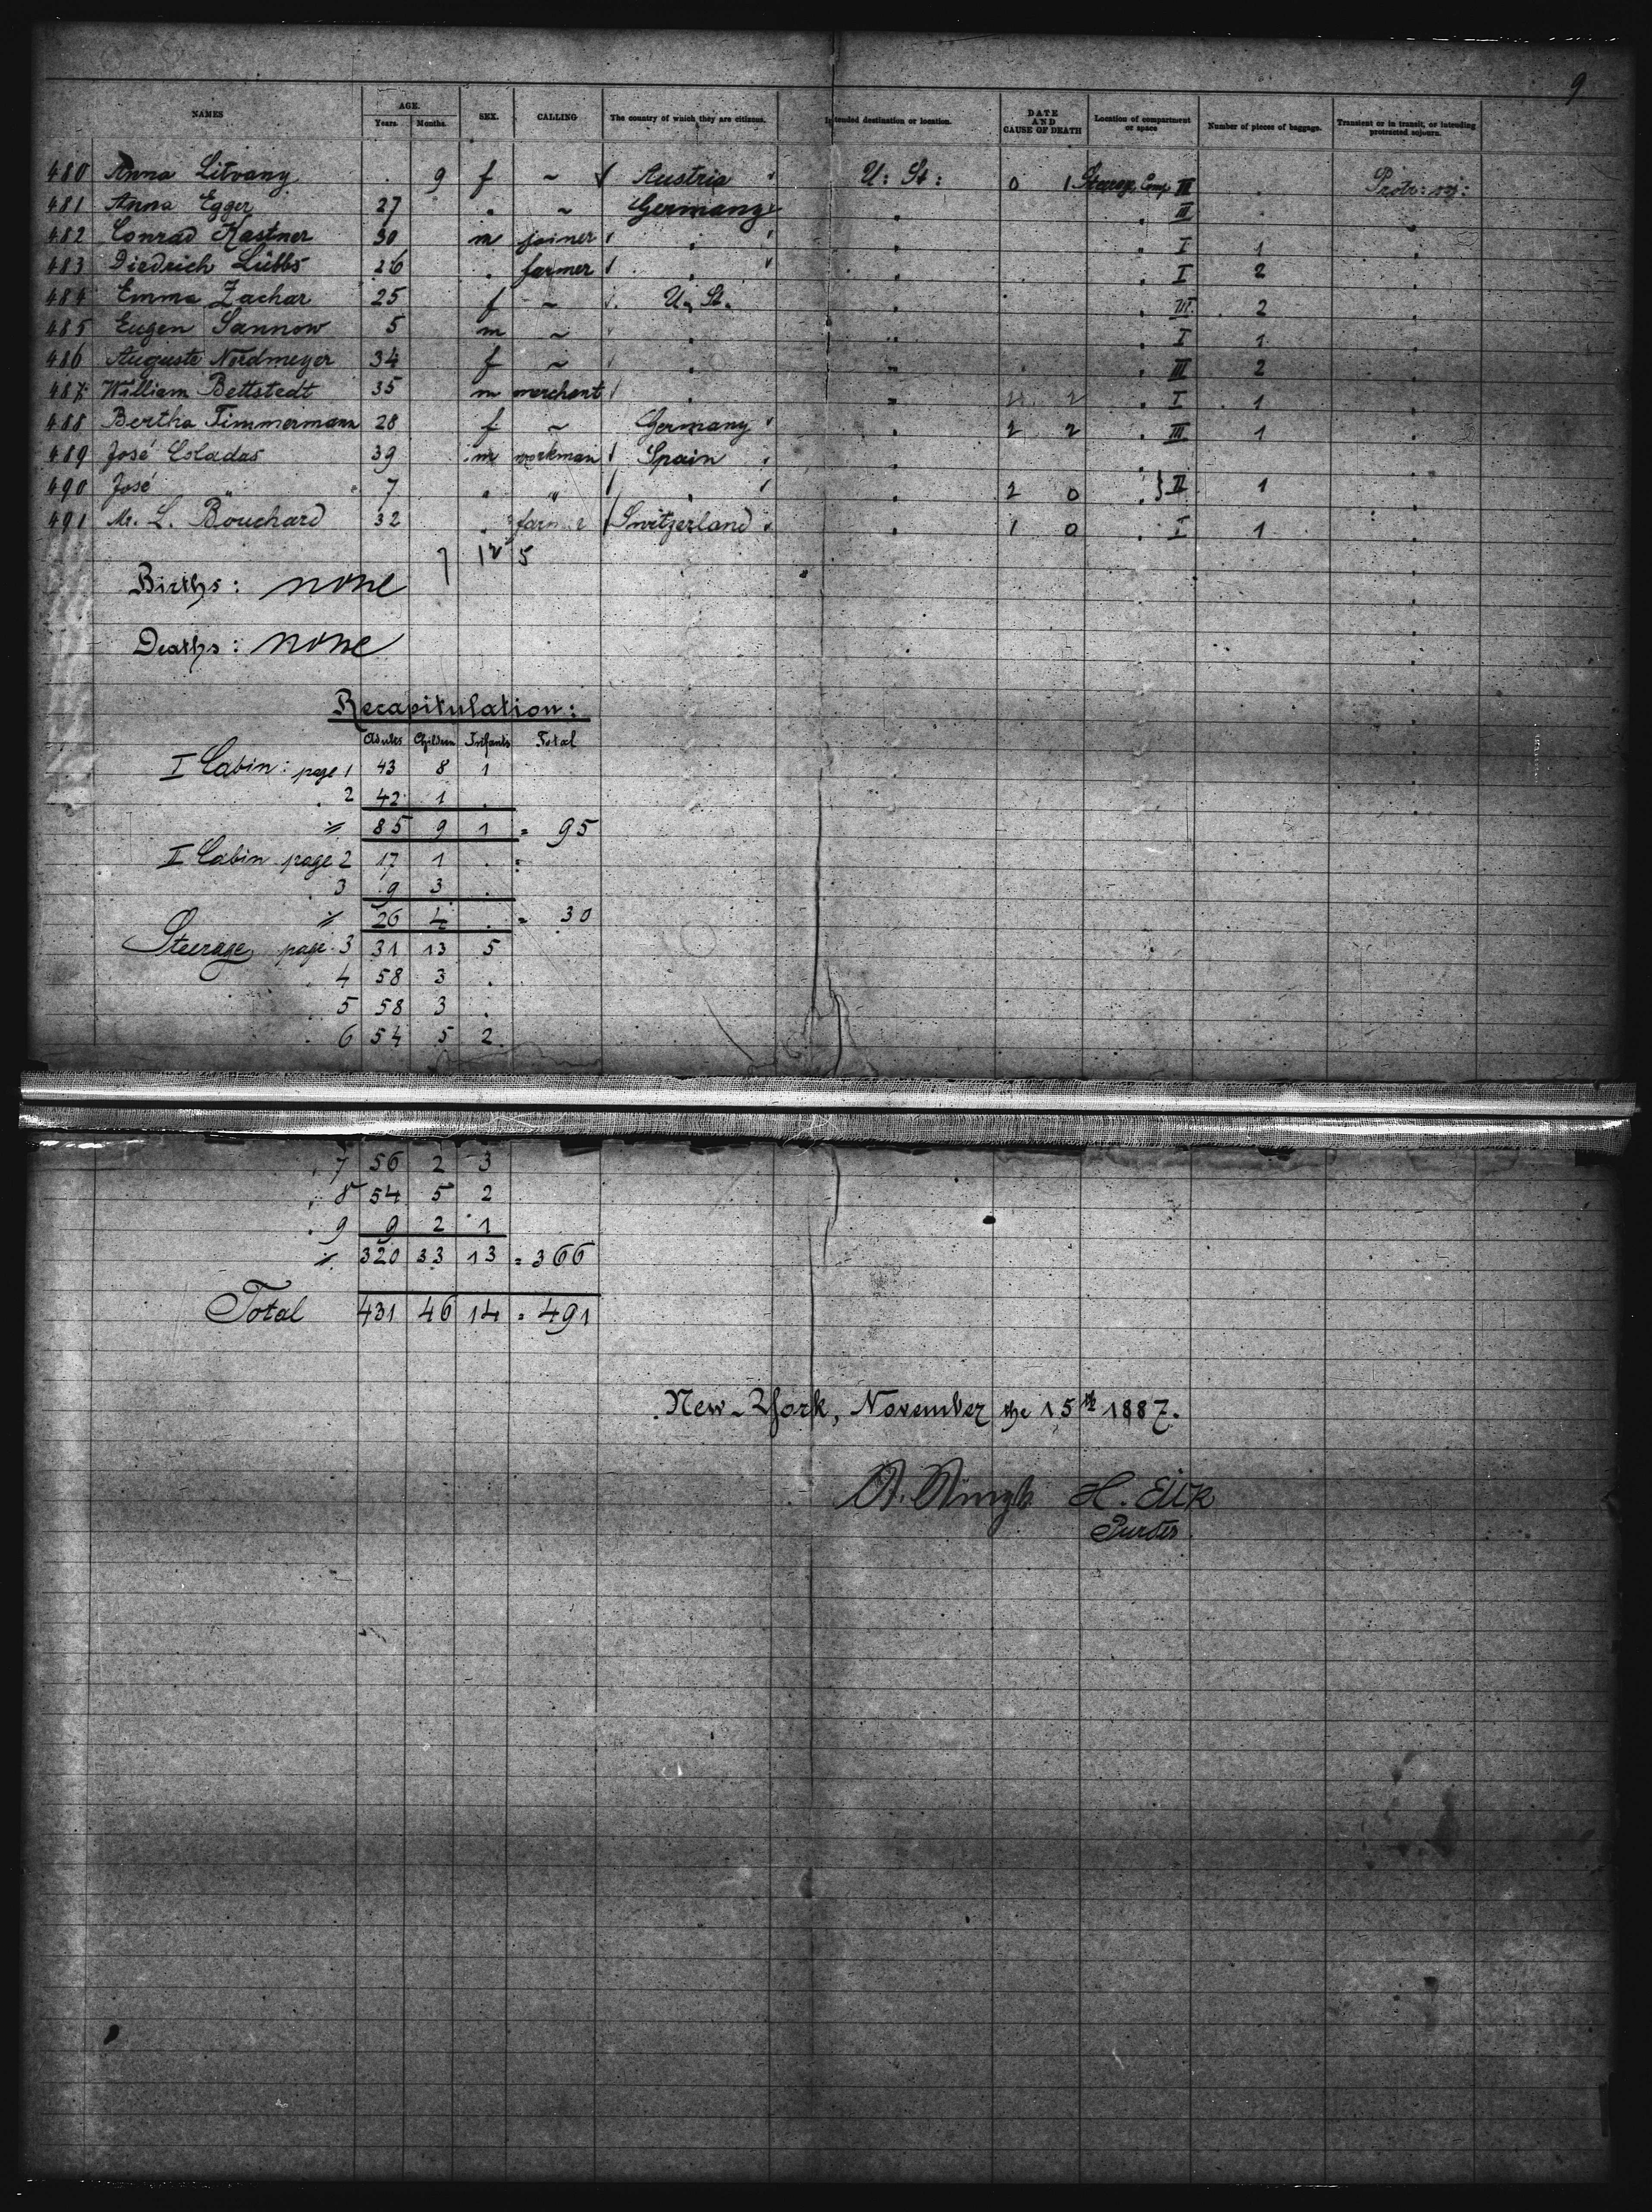 9
NAMES AGE. Years. Months. SEX. CALLING The country of which they are citizens. Intended destination or location. DATE AND CAUSE OF DEATH Location of compartment or space Number of pieces of baggage. Transient or in transit, or intending protracted sojourn.
480 Anna Litvany 9 f ~ Austria U: St: 0 1 Steerage Comp III
481 Anna Egger 27 . ~ Germany . . III .
482 Conrad Kastner 30 m joiner . . . I 1 .
483 Diedrich Lübbs 26 . farmer . . . I 2 .
484 Emma Zachar 25 f ~ U. St. . . III. 2 .
485 Eugen Sannow 5 m ~ . . . I 1 .
486 Auguste Nordmeyer 34 f ~ . . . III 2 .
487 William Bettstedt 35 m merchant . . . I 1 .
488 Bertha Timmermann 28 f ~ Germany . 2 2 . III 1 .
489 José Coladas 39 m workman Spain .
490 José " 7 . " . . 2 0 . } II 1
491 Mr. L. Bouchard 32 . farmer Switzerland . 1 0 . I 1
7 12 5
Births: none
Deaths: none
Recapitulation:
Adults Children Infants Total
I Cabin: page 1 43 8 1
. 2 42 1 .
85 9 1 = 95
II Cabin page 2 17 1 .
. 3 9 3 .
26 4 . = 30
Steerage page 3 31 13 5
. 4 58 3 .
. 5 58 3 .
. 6 54 5 2
. 7 56 2 3
. 8 54 5 2
. 9 9 2 1
320 33 13 = 366
Total 431 46 14 = 491
New-York, November the 15th 1887.
H. Eick
Purser